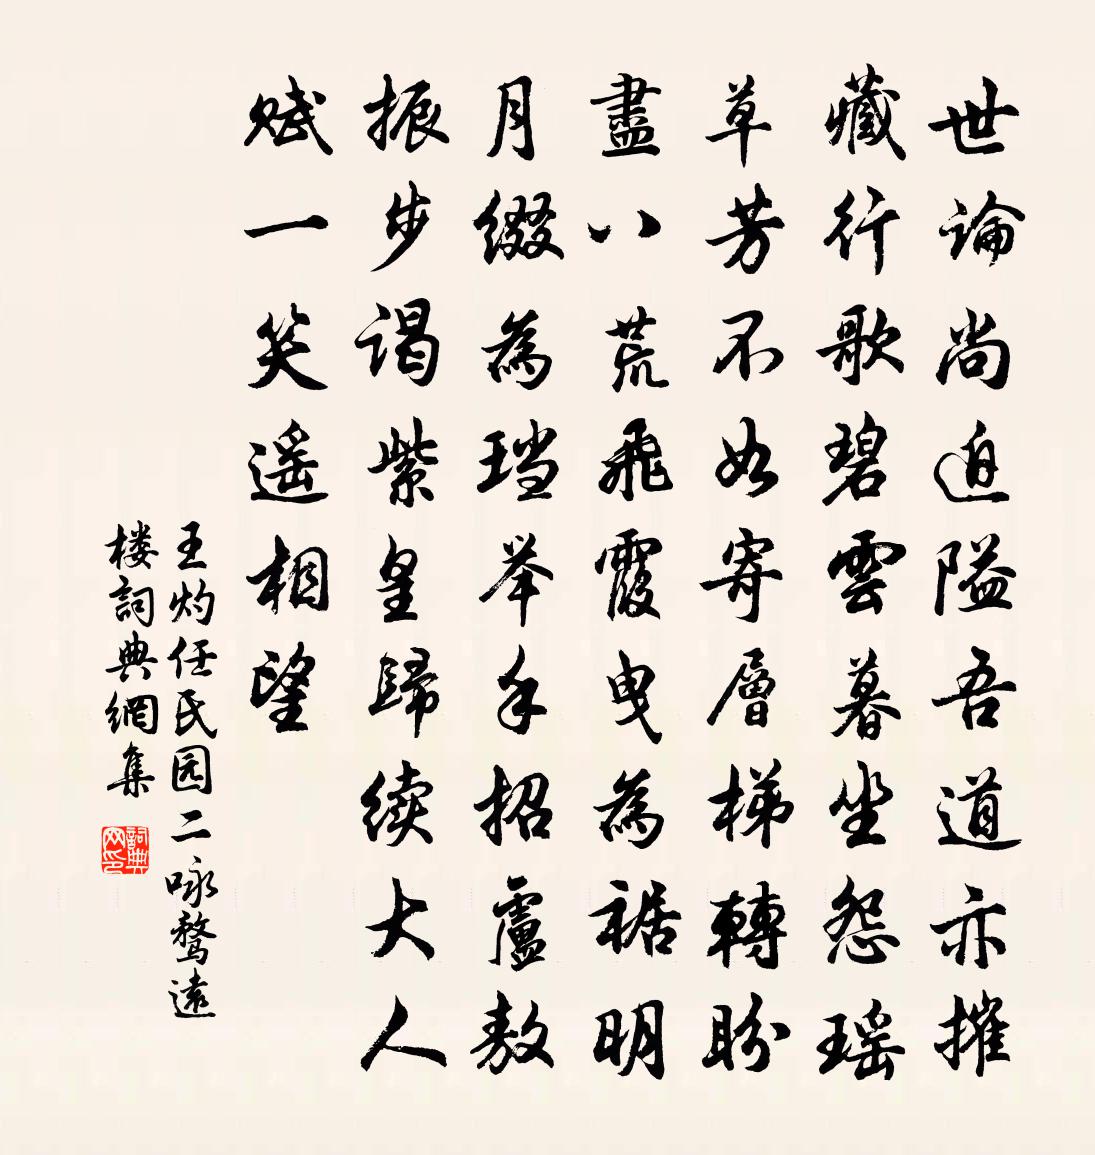 世論尚迫隘吾道亦摧
藏行歌碧雲暮坐怨瑶
草芳不如寄層梯轉盼
盡八荒飛霞曳為裾明
月綴為璫举手招盧敖
振步謁紫皇歸续大人
赋一笑遥相望
王灼任民园二咏騖遠
楼詞典網集
詞典
网印